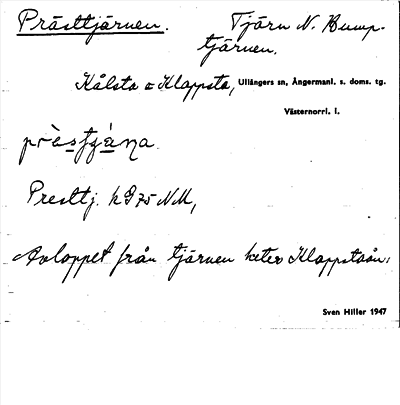 Prästtjärnen. Tjärn N. Hump-
tjärnen.
Kålsta o Klappsta, Ullångers sn, Ångermanl. s. doms. tg.
Västernorrl. l.
Presttj.
Avloppet från tjärnen heter Klappstaån.
Sven Hiller 1947